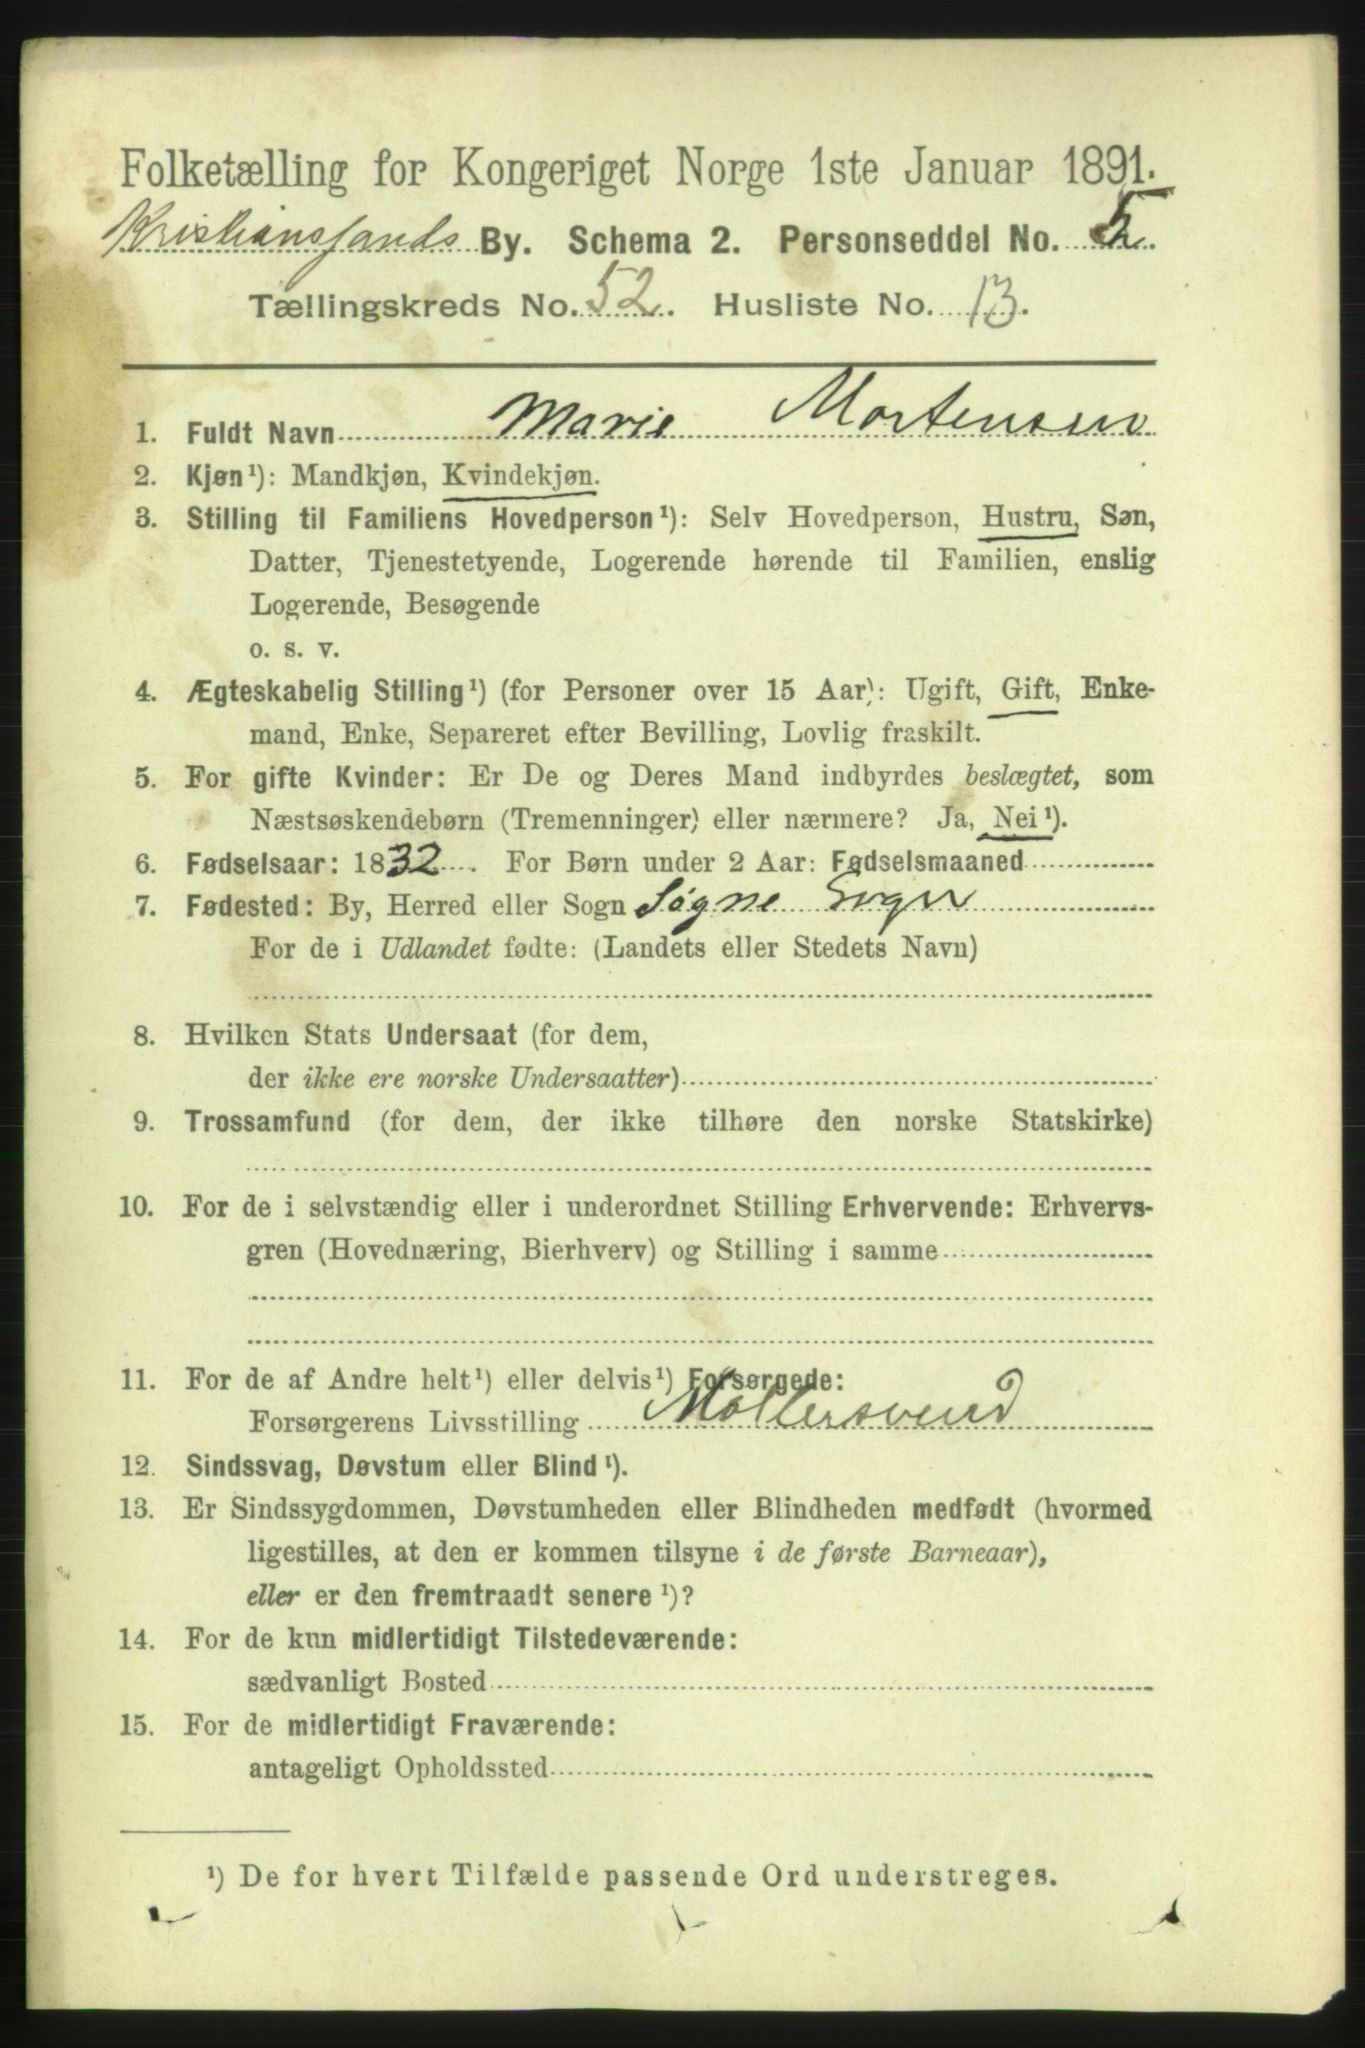 Folketælling for Kongeriget Norge 1ste Januar 1891.
Kristianssands By. Schema 2. Personseddel No. 5.
Tællingskreds No. 52. Husliste No. 13.
1. Fuldt Navn Marie Mortensen
2. Kjøn¹): Mandkjøn, Kvindekjøn.
3. Stilling til Familiens Hovedperson¹): Selv Hovedperson, Hustru, Søn,
Datter, Tjenestetyende, Logerende hørende til Familien, enslig
Logerende, Besøgende
o. s. v.
4. Ægteskabelig Stilling¹) (for Personer over 15 Aar): Ugift, Gift, Enke-
mand, Enke, Separeret efter Bevilling, Lovlig fraskilt.
5. For gifte Kvinder: Er De og Deres Mand indbyrdes beslægtet, som
Næstsøskendebørn (Tremenninger) eller nærmere? Ja, Nei¹).
6. Fødselsaar: 1832. For Børn under 2 Aar: Fødselsmaaned
7. Fødested: By, Herred eller Sogn Søgne Sogn
For de i Udlandet fødte: (Landets eller Stedets Navn)
8. Hvilken Stats Undersaat (for dem,
der ikke ere norske Undersaatter)
9. Trossamfund (for dem, der ikke tilhøre den norske Statskirke)
10. For de i selvstændig eller i underordnet Stilling Erhvervende: Erhvervs-
gren (Hovednæring, Bierhverv) og Stilling i samme
11. For de af Andre helt¹) eller delvis¹) Forsørgede:
Forsørgerens Livsstilling Møllersvend
12. Sindssvag, Døvstum eller Blind¹).
13. Er Sindssygdommen, Døvstumheden eller Blindheden medfødt (hvormed
ligestilles, at den er kommen tilsyne i de første Barneaar),
eller er den fremtraadt senere¹)?
14. For de kun midlertidigt Tilstedeværende:
sædvanligt Bosted
15. For de midlertidigt Fraværende:
antageligt Opholdssted
¹) De for hvert Tilfælde passende Ord understreges.